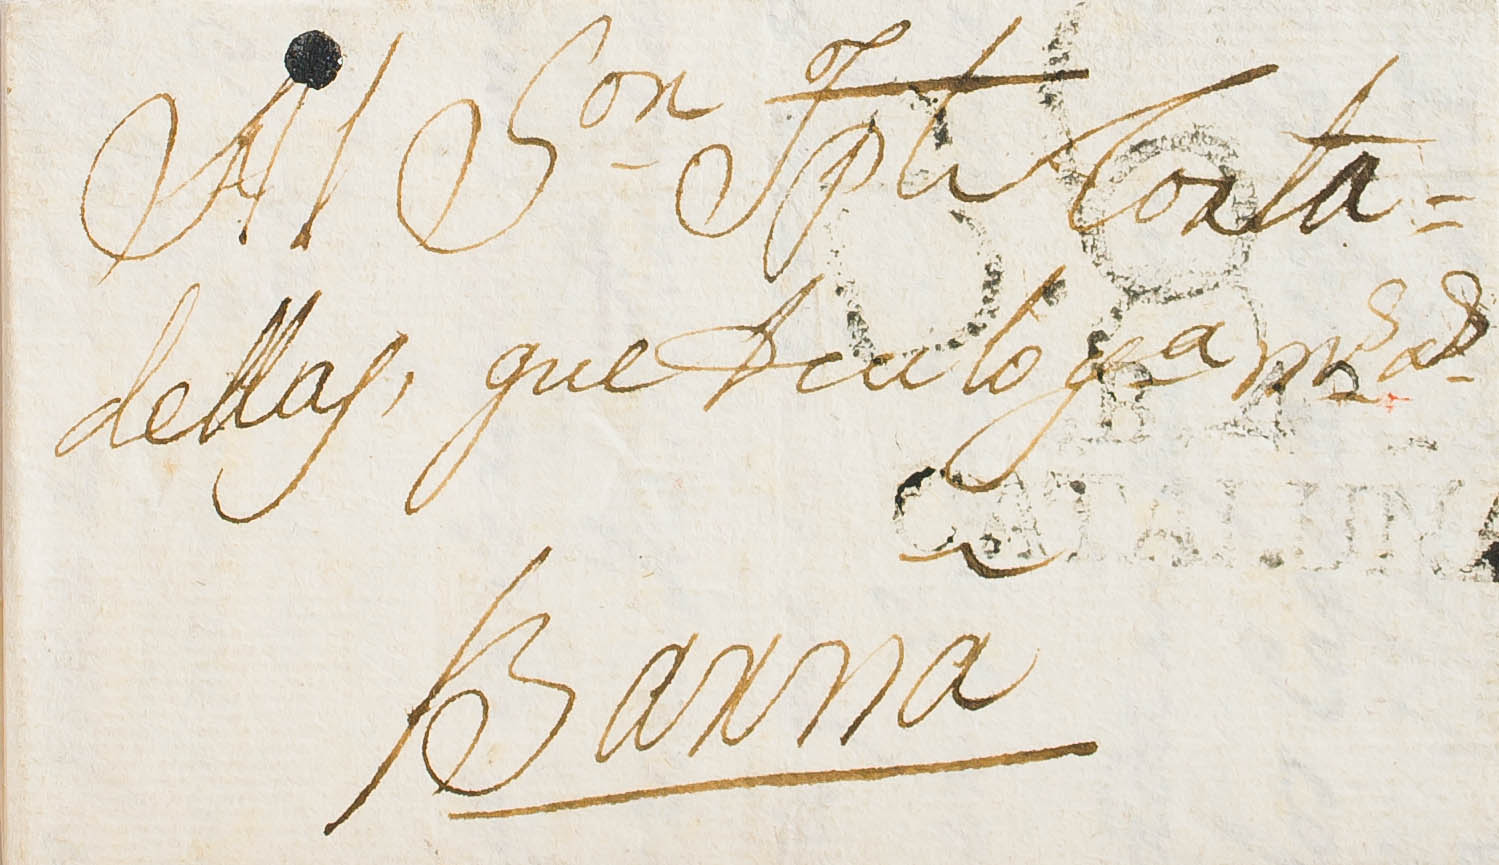 Al Son Jph Corta=
dellas, que Dios lo gea ms as
a
Barna
B.43
CATALUÑA